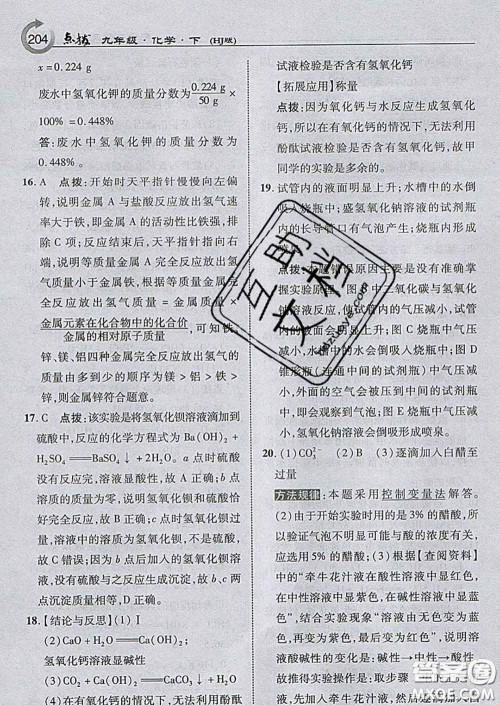 204 点拨 九年级·化学·下 (HJ版)
x=0.224 g
废水中氢氧化钾的质量分数为 0.224 g
50 g ×
100%=0.448%
答：废水中氢氧化钾的质量分数为
0.448%。
16. A 点拨：开始时天平指针慢慢向左偏
转，说明金属 A 与盐酸反应放出氢气速
率大于铁，即金属 A 的活动性比铁强，排
除 C 项；反应结束后，天平指针偏向右
端，说明等质量金属 A 反应后放出氢气
质量小于金属铁，根据等质量金属反应
完全后放出氢气的质量=
金属元素在化合物中的化合价
金属的相对原子质量 可知铁、
锌、镁、铝四种金属完全反应放出氢气的
质量由多到少的顺序为镁>铝>铁>
锌，则金属锌符合。
17. C 点拨：该实验是将氢氧化钡溶液滴加到
硫酸中，反应的化学方程式为 Ba(OH)₂+
H₂SO₄══BaSO₄↓+2H₂O。a 点时硫酸没
有反应完，溶液显酸性，故 A 正确；b 点溶
质的质量为零，说明氢氧化钡和硫酸恰好
完全反应，故 B 正确；c 点时氢氧化钡溶液
过量，此时溶液中不含有硫酸，含有氢氧化
钡，故 C 错误；因为 b 点后加入的氢氧化钡
溶液，没有硫酸与之反应生成沉淀，故 d 两
点沉淀质量相等，D 正确。
18. 【结论与反思】(1) Ⅰ
(2) CaO+H₂O══Ca(OH)₂；
氢氧化钙溶液显碱性
(3) CaO+H₂O══Ca(OH)₂
(4) 在有氧化钙的情况下，无法利用酚酞
试液检验是否含有氢氧化钙
【拓展应用】称量
点拨：因为氧化钙与水反应生成氢氧化
钙，所以在有氧化钙的情况下，无法利用
酚酞试液检验是否含有氢氧化钙，故甲
同学的实验是多余的。
19. 试管内的液面明显上升；水槽中的水倒
吸入烧瓶中；盛氢氧化钠溶液的试剂瓶
内的长导管口有气泡产生；烧瓶内出现
喷泉
点拨：本题错误原因是没有准确地掌
握实验原理。图 B 中二氧化碳与氢氧化
钠溶液反应，使试管内的气压减小，试管
内的液面会明显上升；图 C 烧瓶中气压
减小，水槽中的水会倒吸入烧瓶中；图 D
锥形瓶(连通左侧的试剂瓶)中的气压减
小，外面的空气会被压到中间的试剂瓶
中，即会观察到气泡；图 E 烧瓶中气压减
小，氢氧化钠溶液会形成喷泉。
20. (1) CO₃²⁻ (2) B (3) 逐滴加入白醋至
过量
方法规律：本题采用控制变量法解答。
(2) 由于开始实验时用的是3%的醋酸，所
以验证气泡不明显可能与醋酸的浓度有关，
应选用5%的醋酸；(3) 根据【查阅资料】
中的“牵牛花汁液在酸性溶液中显红色，
在中性溶液中显紫色，在碱性溶液中显蓝
色”，结合实验现象“溶液由蓝色变为蓝
色，再变为紫色，最后变为红色”，说明溶
液酸碱性的变化是：碱性→中性→酸性，
故使牵牛花汁液变色的操作是：取步骤
液，先加入牵牛花汁液，然后逐滴加入